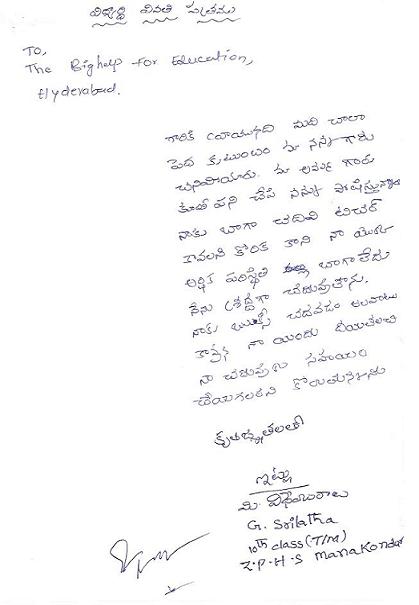 విద్యార్థి వినతి పత్రము
To,
The Bighelp For Education,
Hyderabad.
గారికి వ్రాయునది మాది చాలా
పేద కుటుంబం మా నాన్న గారు
చనిపోయారు. మా అమ్మ గారు
కూలీ పని చేసి నన్ను పోషిస్తున్నారు
నాకు బాగా చదివి టీచర్
కావాలని కోరిక కాని నా యొక్క
ఆర్థిక పరిస్థితి బాగా లేదు
నేను శ్రద్ధగా చదువుతాను.
నాకు బుక్స్ చదవడం అలవాటు
కావున నా యందు దయతలచి
నా చదువుకు సహాయం
చేయగలరని కోరుతున్నాను
కృతజ్ఞతలతో
ఇట్లు
మీ విధేయురాలు
G. Srilatha
10th class (T/M)
Z.P.H.S Manakondur